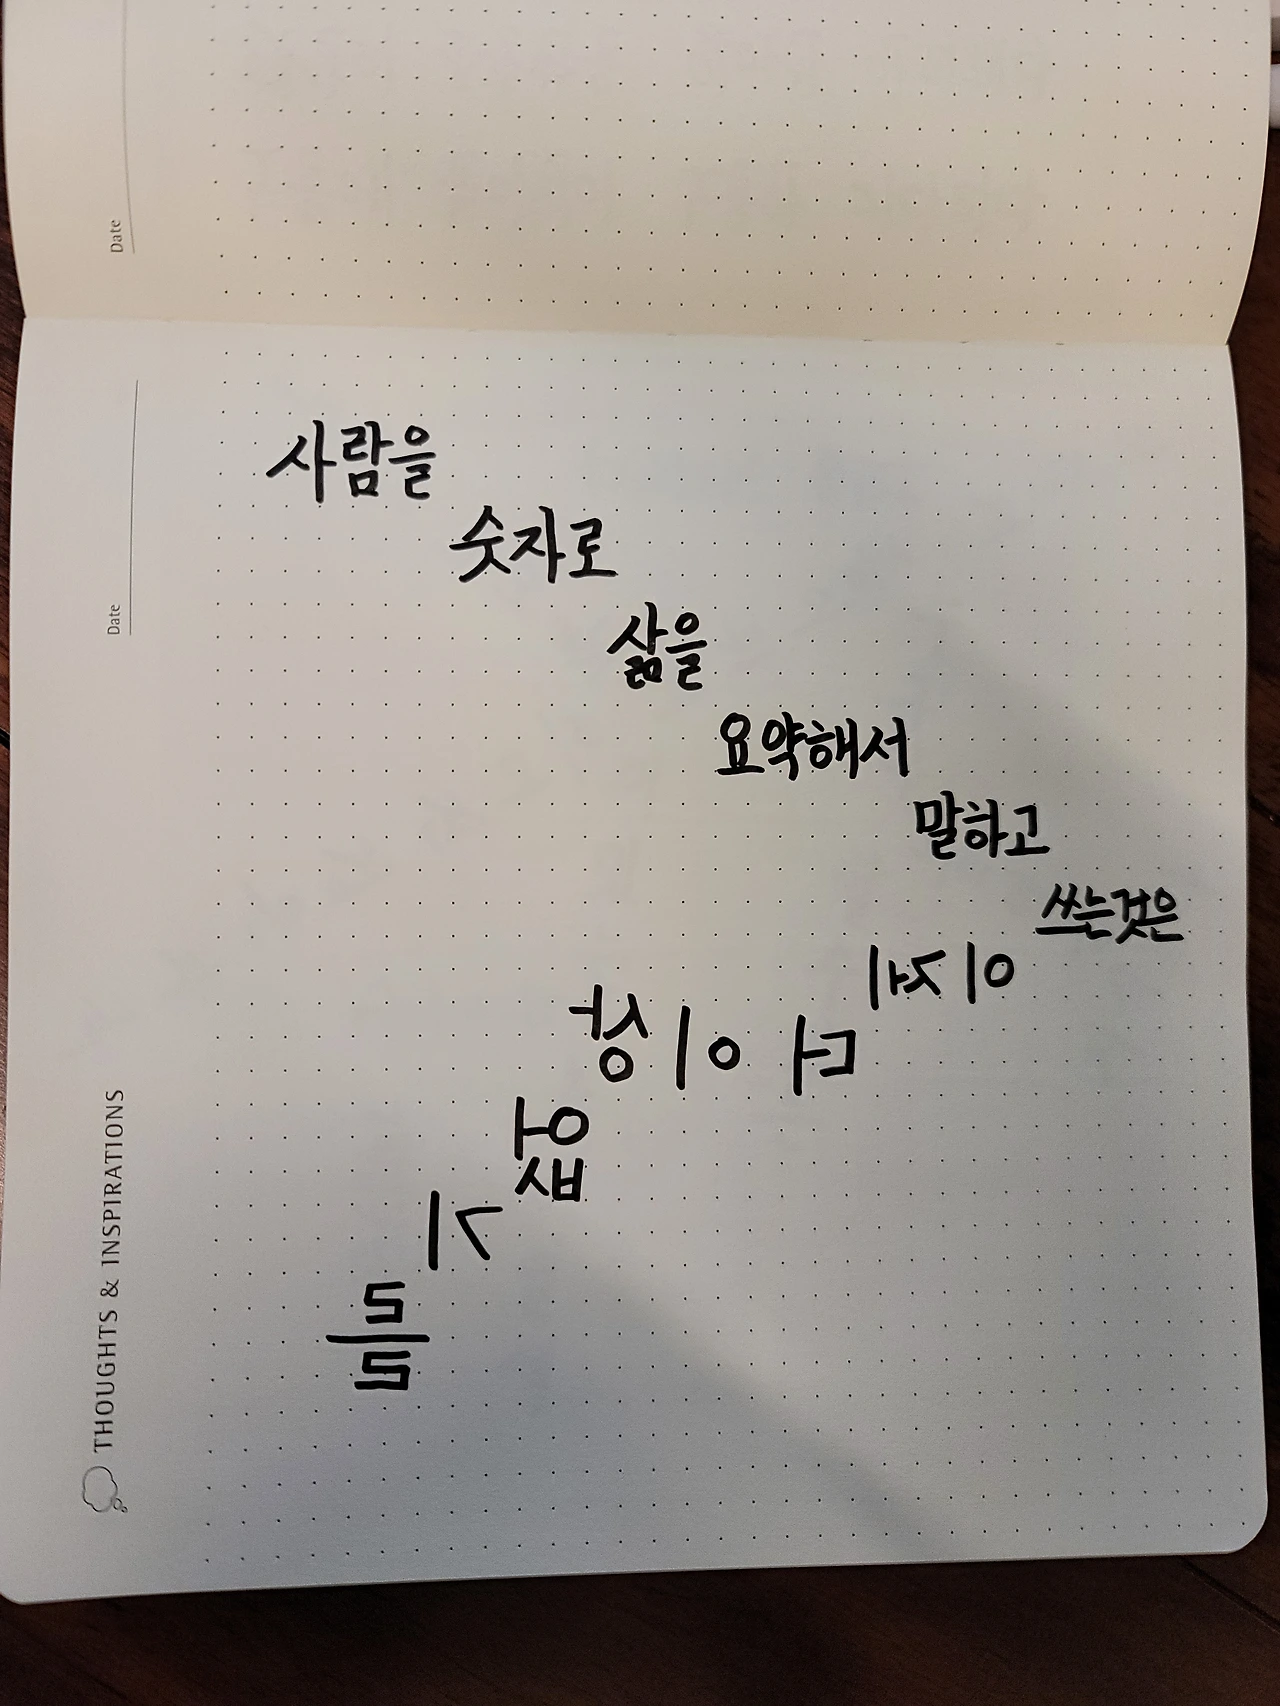 Date
Date
THOUGHTS & INSPIRATIONS
사람을
숫자로
삶을
요약해서
말하고
쓰는것은
이제
더 이상
없
기
를